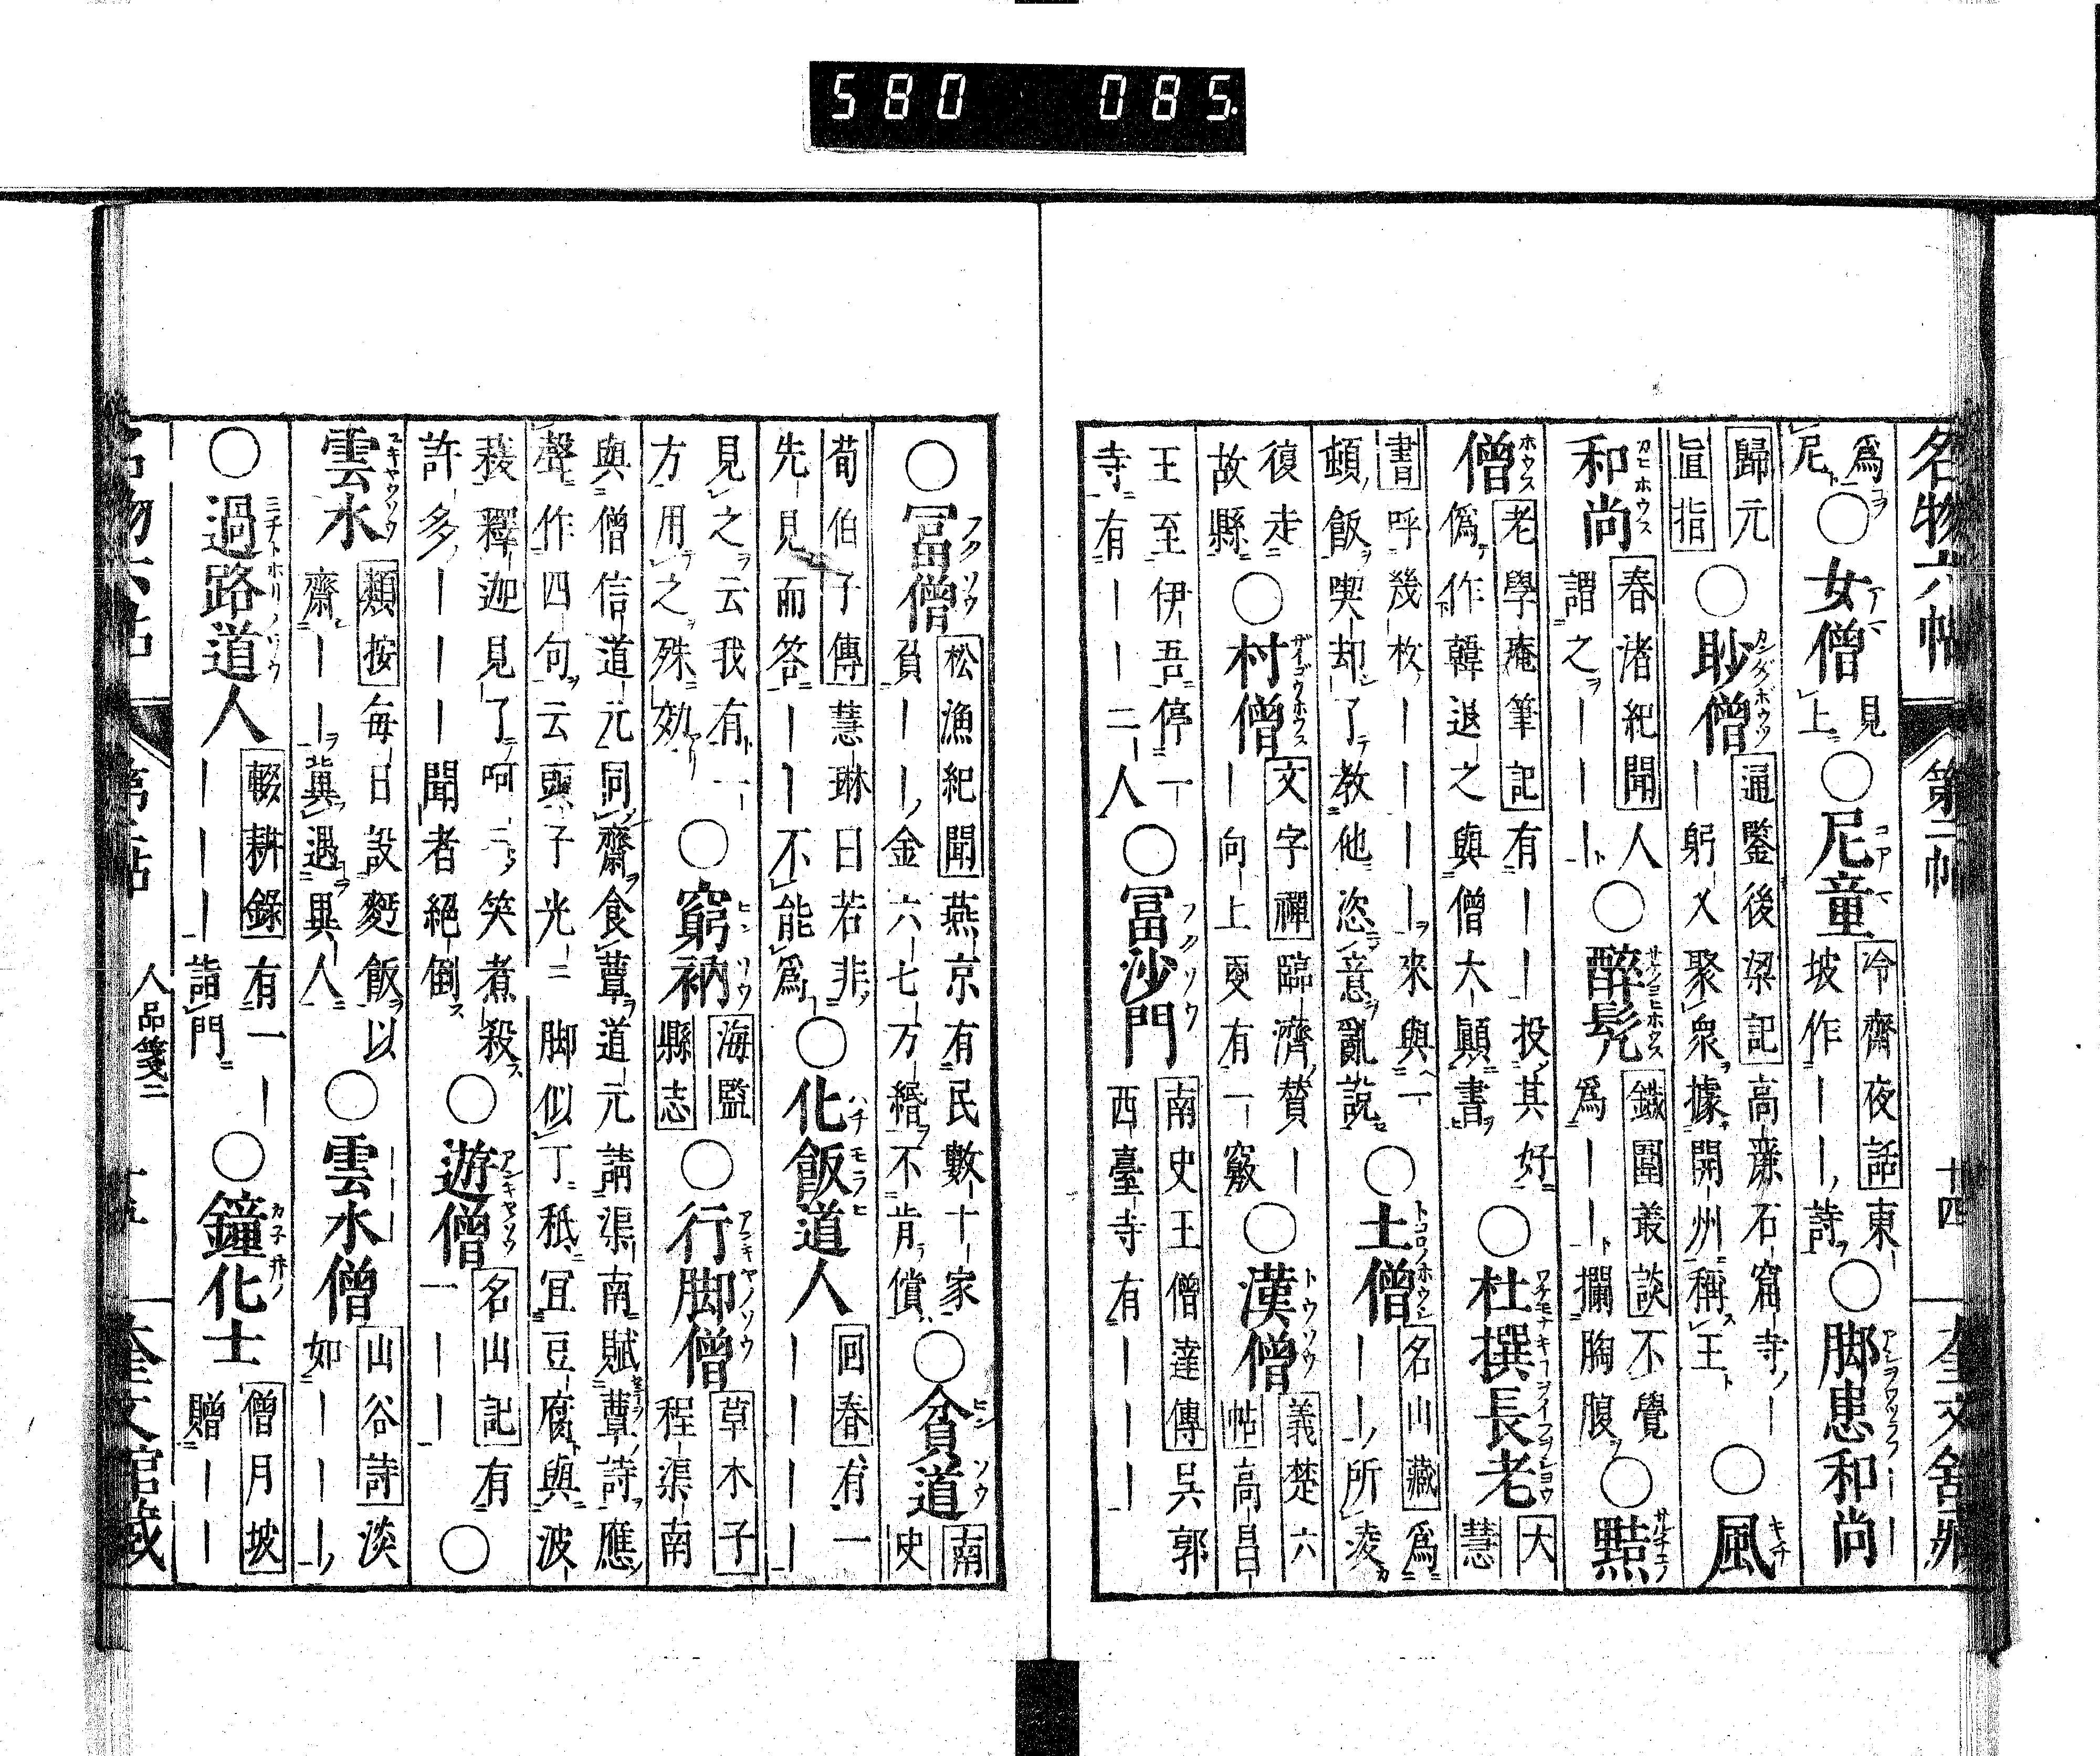 580 085.
名物六帖 第二帖 十四 奎文舘藏
爲尼○女僧見上○尼童冷齋夜話東坡作｜｜詩○脚患和尚｜｜
歸元直指○眇僧通鑒後梁記高䴡石窟寺｜｜躬乂聚衆據開州稱王○風
和尚春渚紀聞人謂之｜｜○醉髡鐵圍叢談不覺爲｜｜攔胸腹○黠
僧老學庵筆記有｜｜投其好僞作韓退之與僧大顚書○杜撰長老大慧
書呼幾枚｜｜｜｜來與一頓飯喫却了教他恣意亂説○土僧名山藏爲｜｜所凌
復走故縣○村僧文字禪臨濟贊｜｜向上更有一竅○漢僧義楚六帖高昌
王至伊吾停一寺有｜｜二人○冨沙門南史王僧達傳吳郭西臺寺有｜｜｜
○冨僧松漁紀聞燕京有民數十家負｜｜金六七万緡不肯償○貧道南史
荀伯子傳慧琳曰若非先見而答｜｜不能爲○化飯道人回春有一｜｜｜｜
見之云我有一方用之殊効○窮衲海監縣志○行脚僧草木子程渠南
與僧信道元同齋食蕈道元請渠南賦蕈詩應聲作四句云頭子光二脚似丁秖宜豆腐與波
菱釋迦見了呵二笑煮殺許多｜｜｜聞者絕倒○遊僧名山記有一｜｜○
雲水類按每日設麫飯以齋｜｜冀遇異人○雲水｜｜｜僧山谷詩淡如｜｜｜
○過路道人輟耕錄有一｜｜｜｜詣門○鐘化士僧月坡贈｜｜
名物六帖 第二帖 人品箋二 十五 奎文舘藏